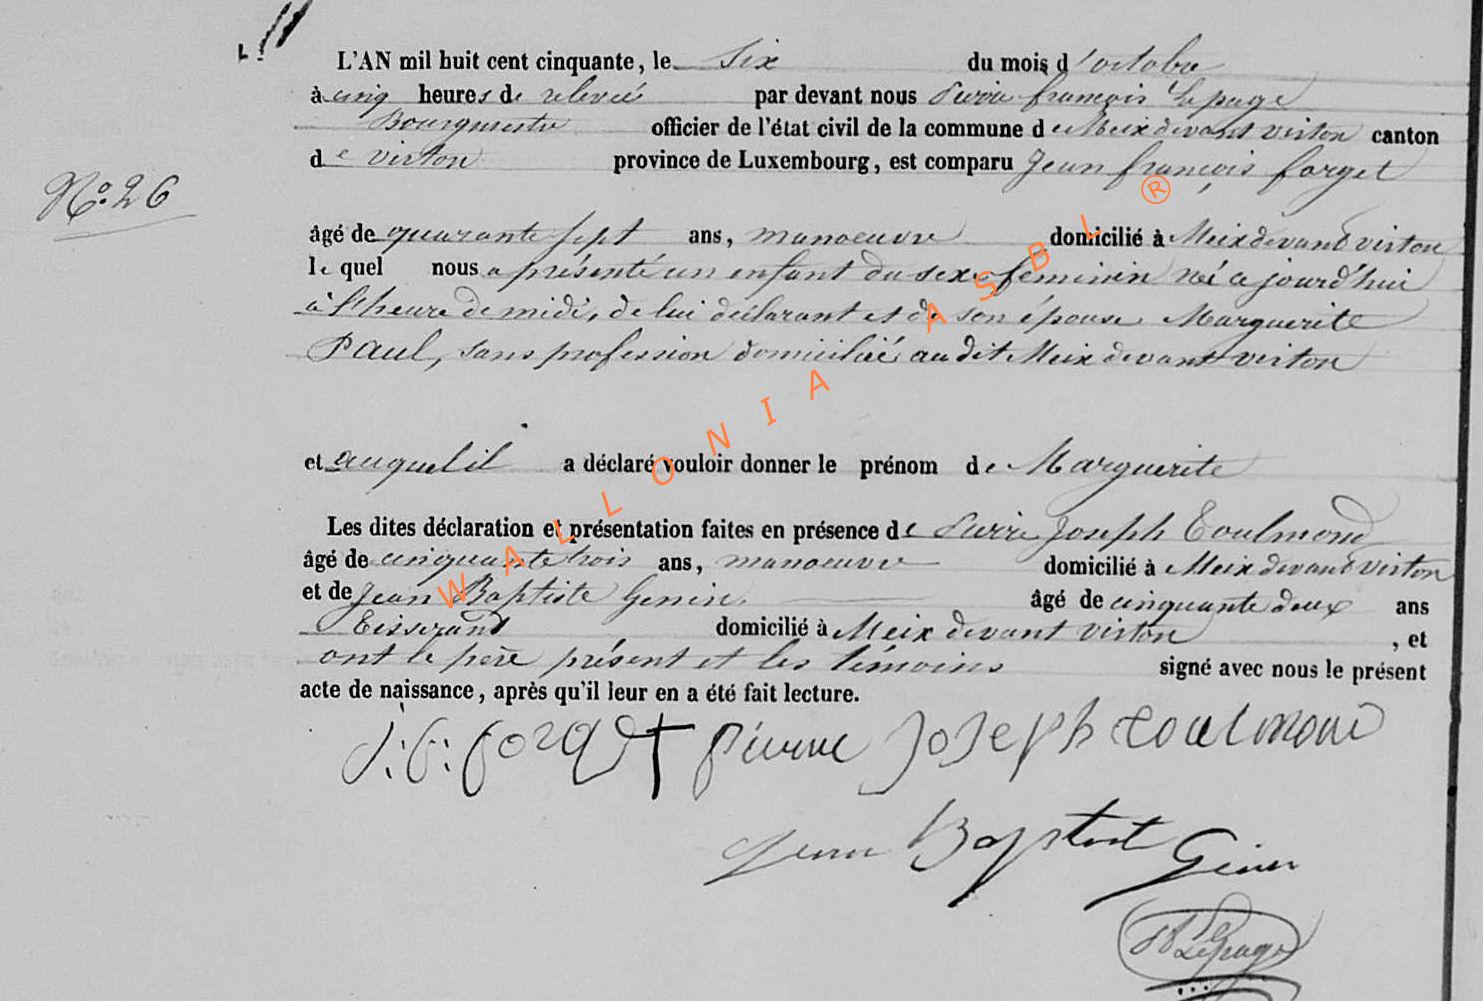 L'AN mil huit cent cinquante, le six du mois d'octobre
à cinq heures de relevée par devant nous Pierre françois Lepage
Bourgmestre officier de l'état civil de la commune de Meix devant virton canton
de virton province de Luxembourg, est comparu Jean françois forget
N.o 26
âgé de quarante sept ans, manoeuvre domicilié à Meix devant virton
le quel nous a présenté un enfant du sexe féminin né ce jourd'hui
à l'heure de midi, de lui déclarant et de son épouse Marguerite
Paul, sans profession domiciliée audit Meix devant virton
et auquel il a déclaré vouloir donner le prénom de Marguerite
Les dites déclaration et présentation faites en présence de Pierre Joseph Toulmond
âgé de cinquante trois ans, manoeuvre domicilié à Meix devant virton
et de Jean Baptiste Genin, âgé de cinquante deux ans
Tisserand domicilié à Meix devant virton, et
ont le père présent et les témoins signé avec nous le présent
acte de naissance, après qu'il leur en a été fait lecture.
j:f: forget pierre joseph toulmond
Jean Baptist Genin
Lepage
WALLONIA ASBL ®